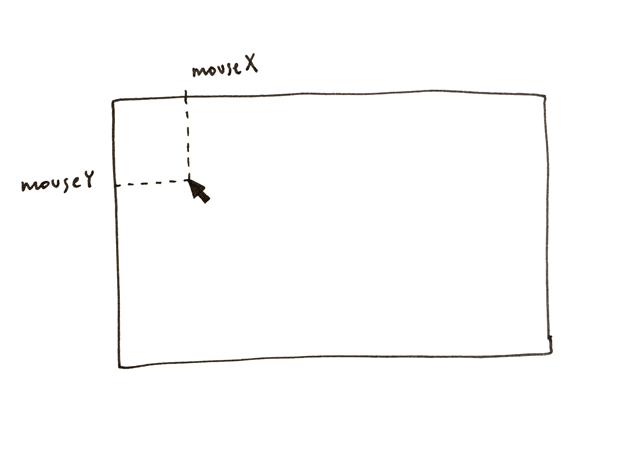 mouseX
mouseY